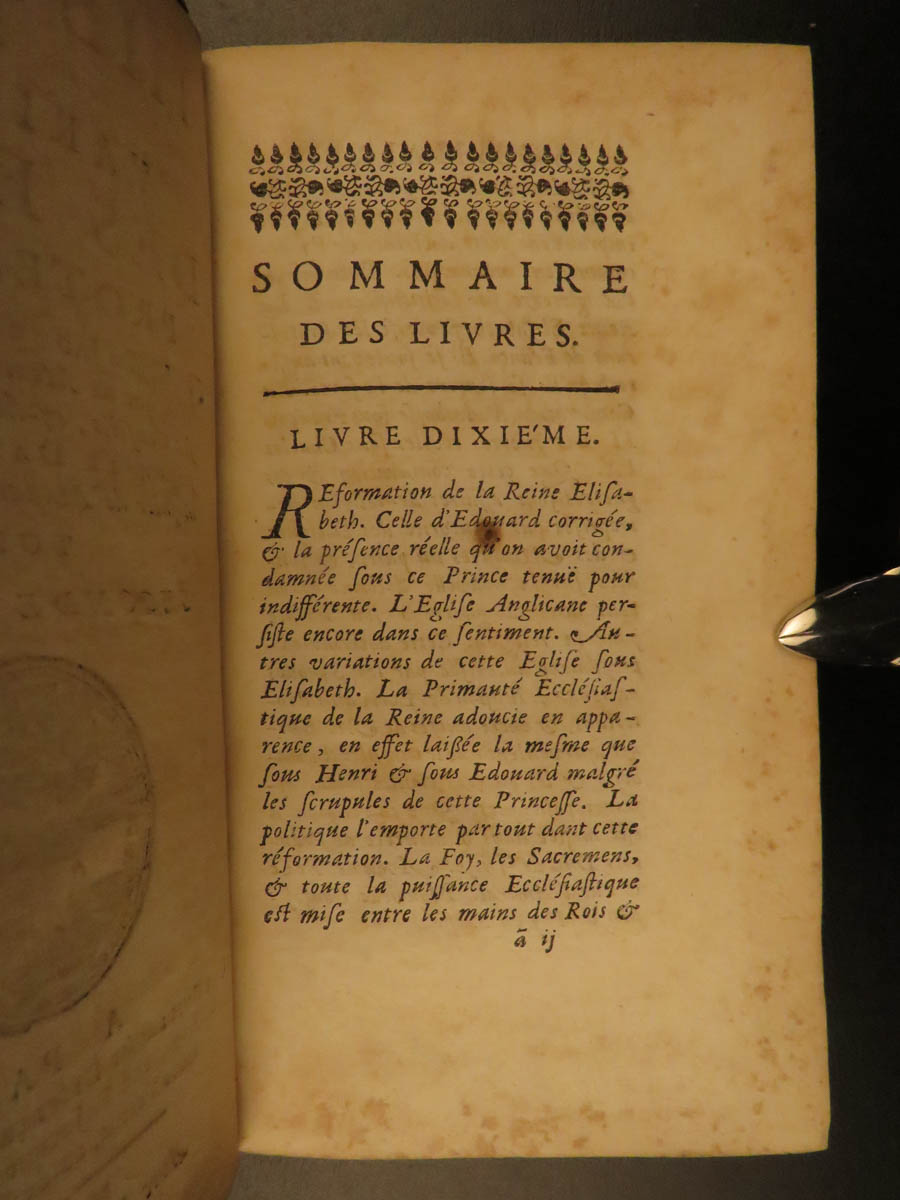 SOMMAIRE
DES LIVRES.
LIVRE DIXIE'ME.
REformation de la Reine Elisa-
beth. Celle d'Edouard corrigée,
& la présence réelle qu'on avoit con-
damnée sous ce Prince tenuë pour
indifférente. L'Eglise Anglicane per-
siste encore dans ce sentiment. Au-
tres variations de cette Eglise sous
Elisabeth. La Primauté Ecclésias-
tique de la Reine adoucie en appa-
rence, en effet laißée la mesme que
sous Henri & sous Edouard malgré
les scrupules de cette Princesse. La
politique l'emporte par tout dant cette
réformation. La Foy, les Sacremens,
& toute la puissance Ecclésiastique
est mise entre les mains des Rois &
ã ij